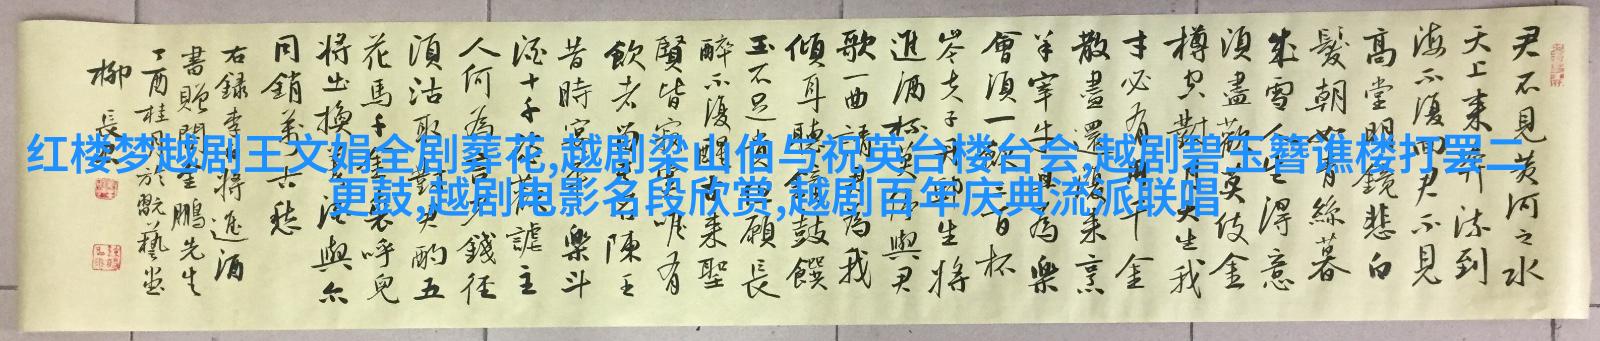 君不見黃河之水
天上来奔流到
海不復回君不見
高堂明鏡悲白
髮朝如青絲暮
成雪人生得意
須盡歡莫使金
樽空對月天生我
才必有用千金
散盡還復来烹
羊宰牛且為樂
會須一飲三百杯
岑夫子丹丘生將
進酒杯莫停與君
歌一曲請君為我
傾耳聽鐘鼓饌
玉不足貴但願長
醉不復醒古来聖
賢皆寂寞唯有
飲者留其名陳王
昔時宴平樂斗
酒十千恣歡謔主
人何為言少錢徑
須沽取對君酌五
花馬千金裘呼兒
將出換美酒與尒
同銷萬古愁
右録李白將進酒
書贈生鵬先生
丁酉桂月於翫藝堂
柳長
红楼梦越剧王文娟全剧葬花,越剧梁山伯与祝英台楼台会,越剧碧玉簪谯楼打罢二
更鼓,越剧电影名段欣赏,越剧百年庆典流派联唱